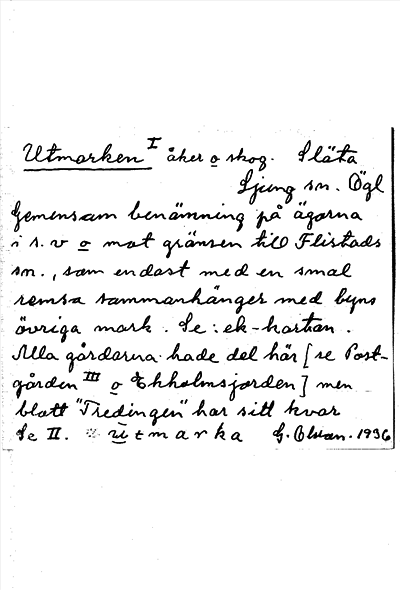 Utmarken I åker o skog. Släta
Ljung sn. Ögl
Gemensam benämning på ägorna
i s.v o mot gränsen till Flistads
sn., som endast med en smal
remsa sammanhänger med byns
övriga mark. Se: ek-kartan.
Alla gårdarna hade del här [se Post-
gården III o Ekholmsjorden] men
blott "Tredingen" har sitt kvar
Se II. utmarka G. Olson. 1936